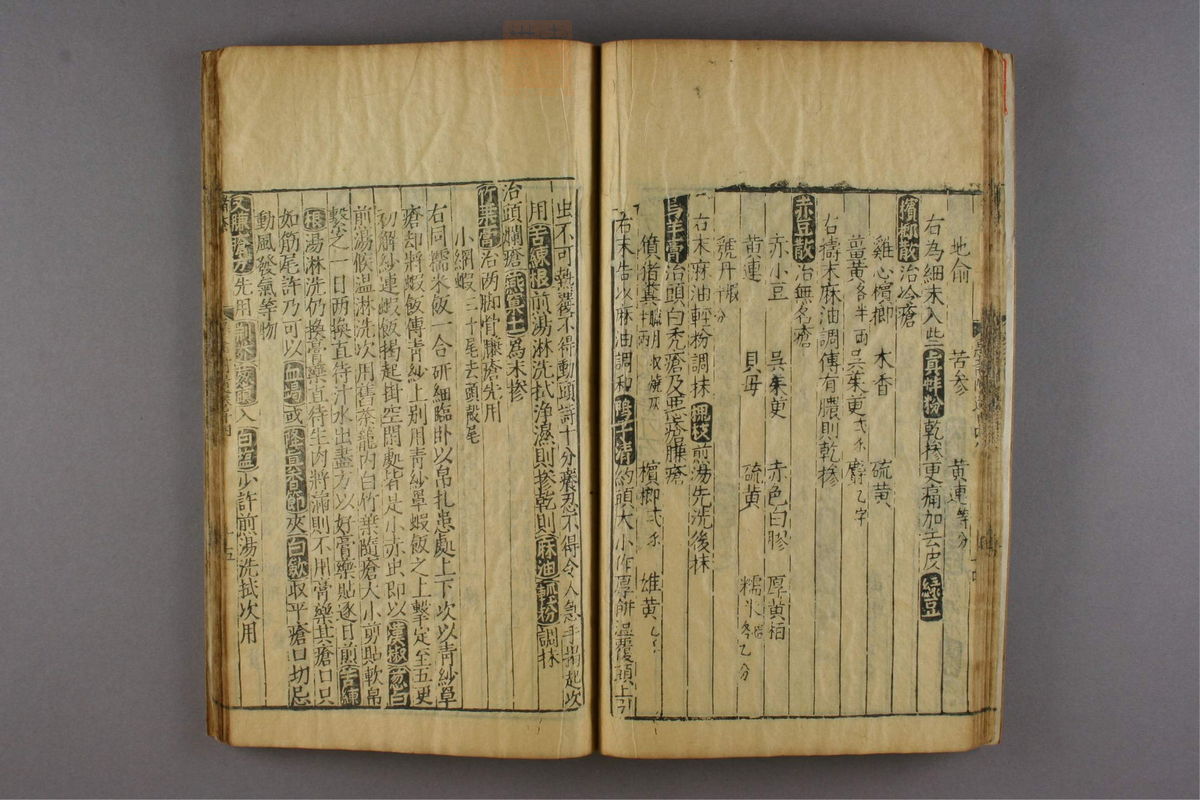 地俞 苦参 黄連等分
右為細末入些眞蚌粉乾摻更痛加去皮綠豆
檳榔散治冷瘡
雞心檳榔 木香 硫黄
薑黄各半兩 吳茱萸弍 麝乙字
右擣末麻油調傅有膿則乾摻
赤豆散治無名瘡
赤小豆 吳茱萸 赤色白膠 厚黄柏
黄連 貝母 硫黄 糯米各乙分
號丹煅十分
烏羊膏治頭白禿瘡及惡瘡腫瘡
右末麻油輕粉調抹槐枝煎湯先洗後抹
猪糞 半兩 取燒灰 檳榔弍 雄黄
右末先以麻油調和鴨子清約頭大小作厚餅漫覆頭上引
虫不可熱覆不得動頭許十分癢忍不得令人急手揭起次
用苦練根煎湯淋洗拭浄濕則摻乾則麻油輕粉調抹
治頭爛瘡燕窠土爲末摻
竹葉膏治两脚骨臁瘡先用
小網蝦三十尾去頭殼尾
右同糯米飯一合研細臨卧以帛扎患處上下次以青紗單
瘡却將蝦飯傅青紗上别用青紗單蝦飯之上擊定至五更
初解紗連蝦飯揭起掛空閑處皆是小赤虫即以漢椒葱白
前湯候温淋洗次用舊茶籠内白竹葉隨瘡大小剪貼軟帛
擊之一日两換直待汁水出盡方以好膏藥貼逐日煎苦練
根湯淋洗仍換膏藥直待生肉將滿則不用膏藥其瘡口只
如筋尾許乃可以血竭或降真香節夾白歛取平瘡口切忌
動風發氣等物
又臁瘡方先用 入白塩少許煎湯洗拭次用